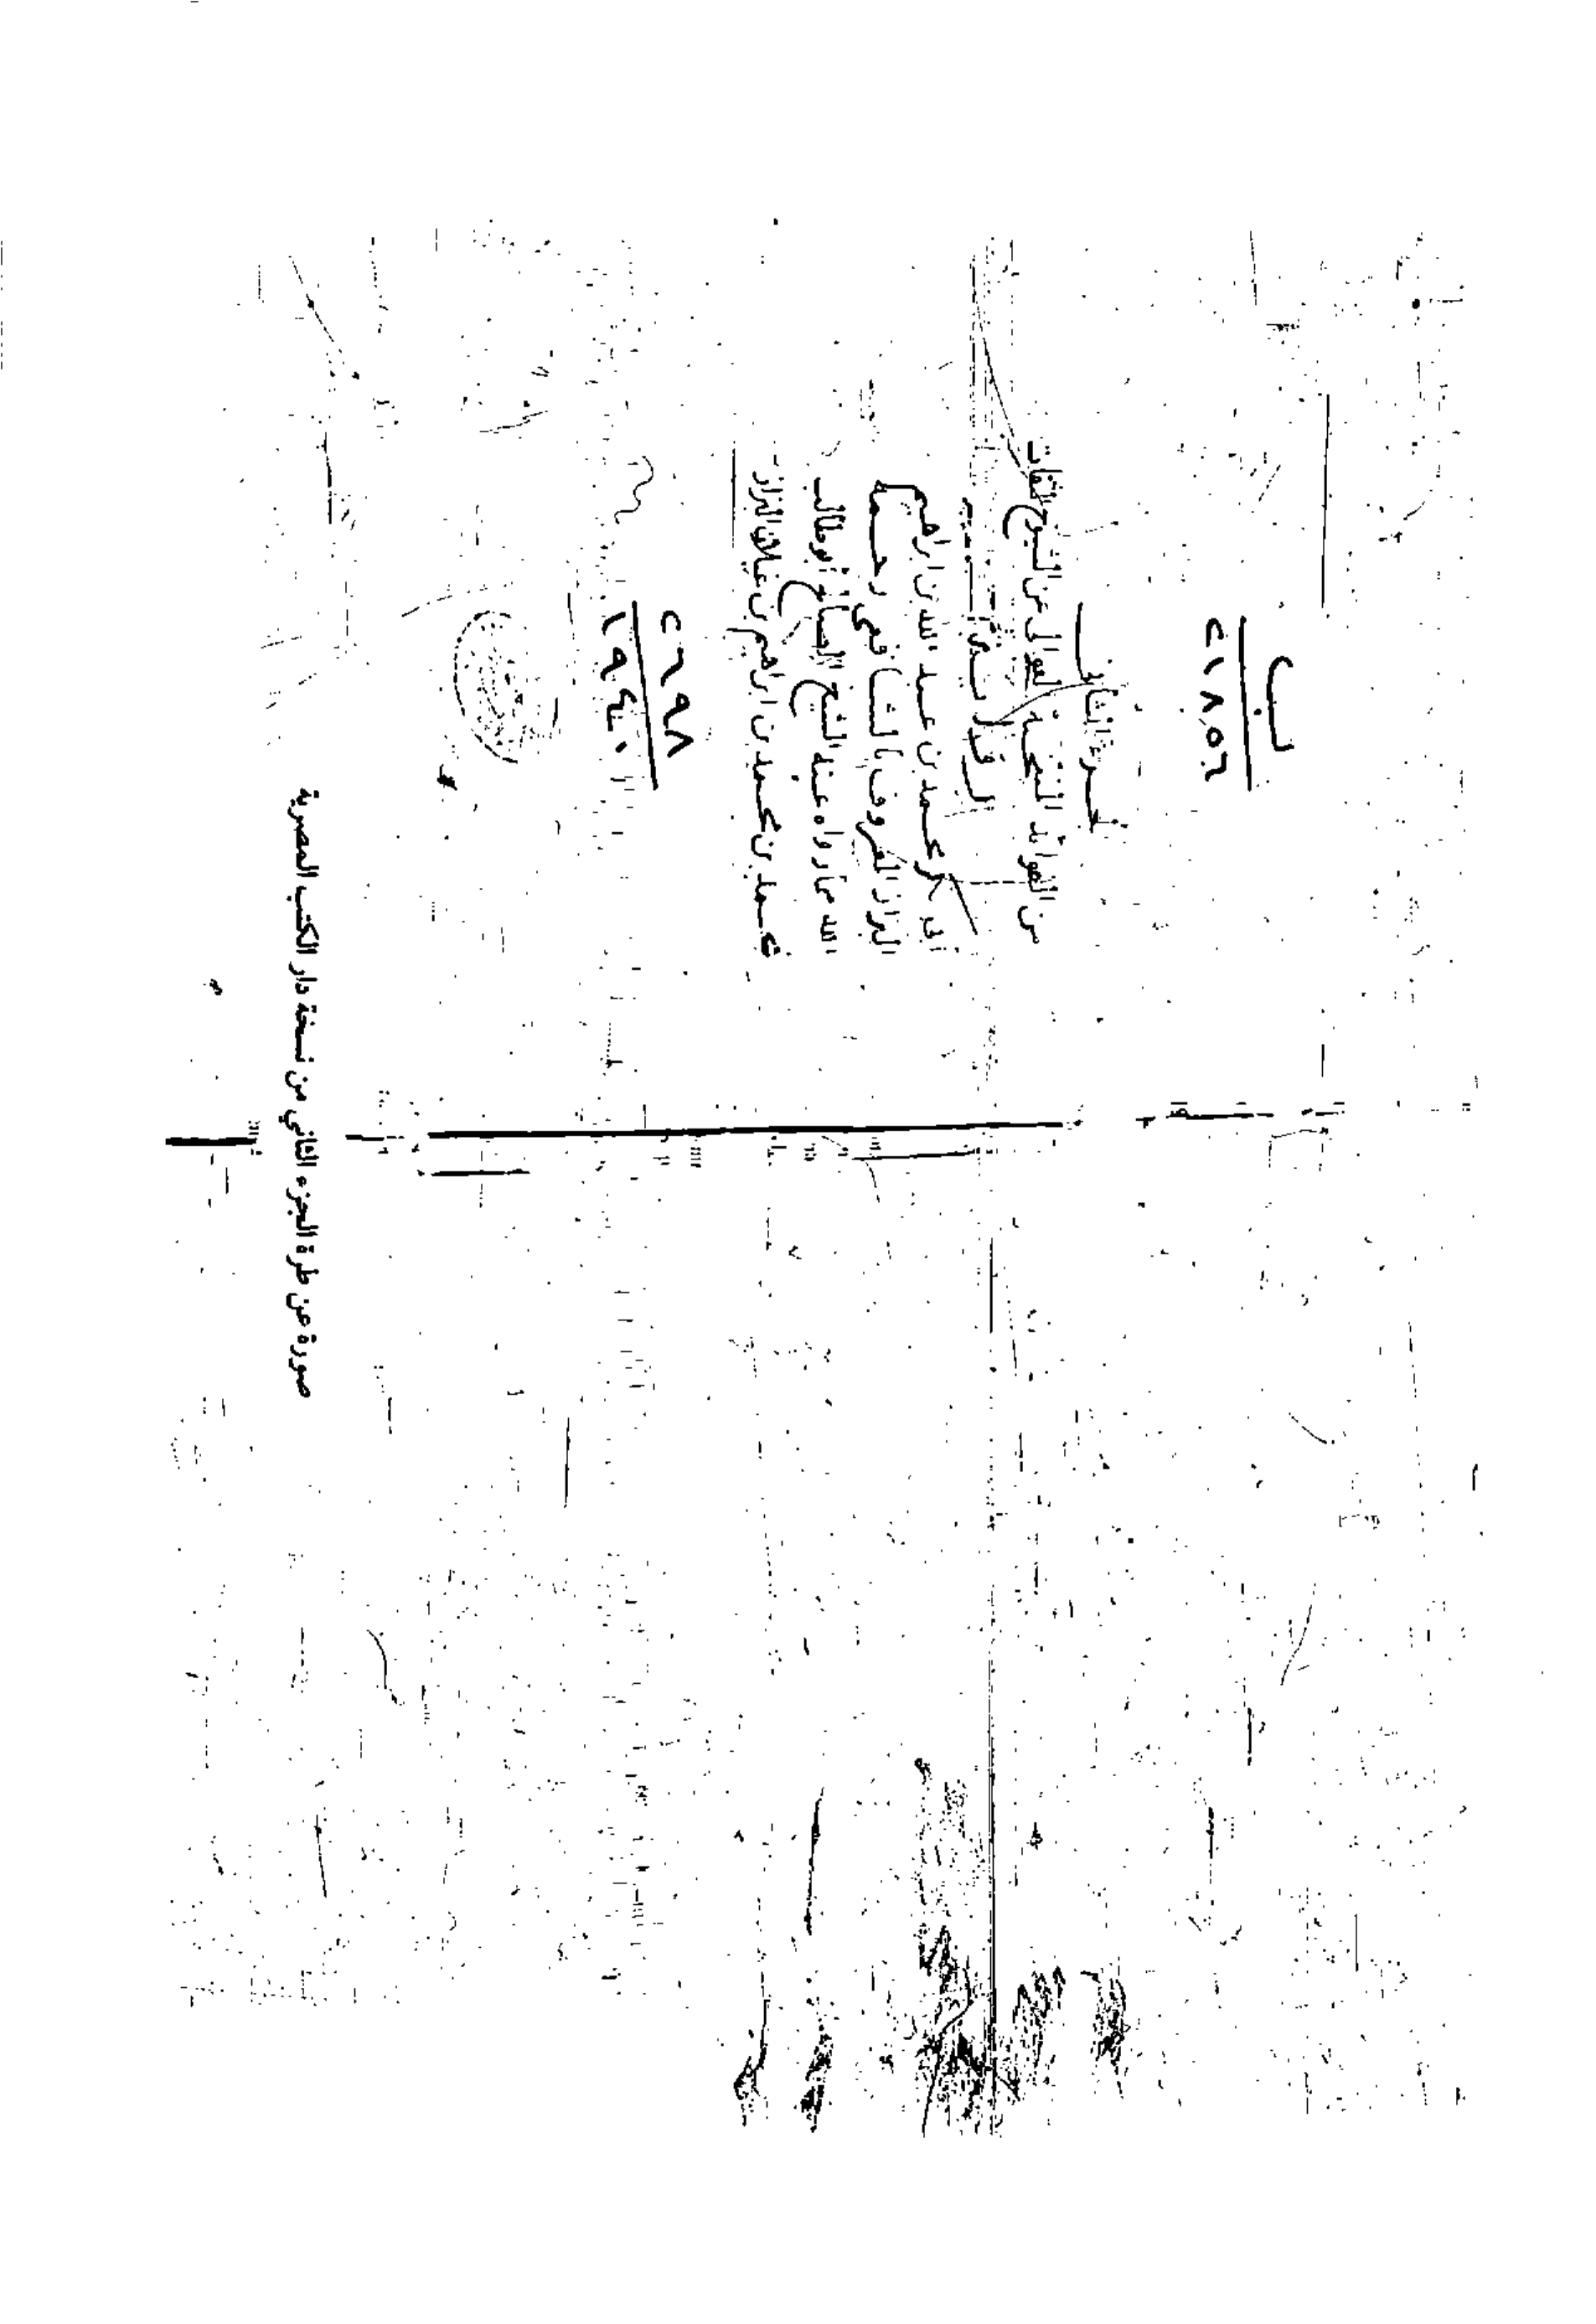 ب
٢١٨٥٦
الجزء الثاني
من الفوائد المنتخبة العوالي عن الشيوخ الثقات
ابي بكر محمد بن عبد الله بن ابراهيم
البزاز المعروف بالشافعي رحمه
الله مما رواه عنه الشيخ الصالح ابو طالب
محمد بن محمد بن ابراهيم بن غيلان البزاز
٢٦٩٨
١٩٤٠
صورة عن طرة الجزء الثاني من نسخة دار الكتب المصرية